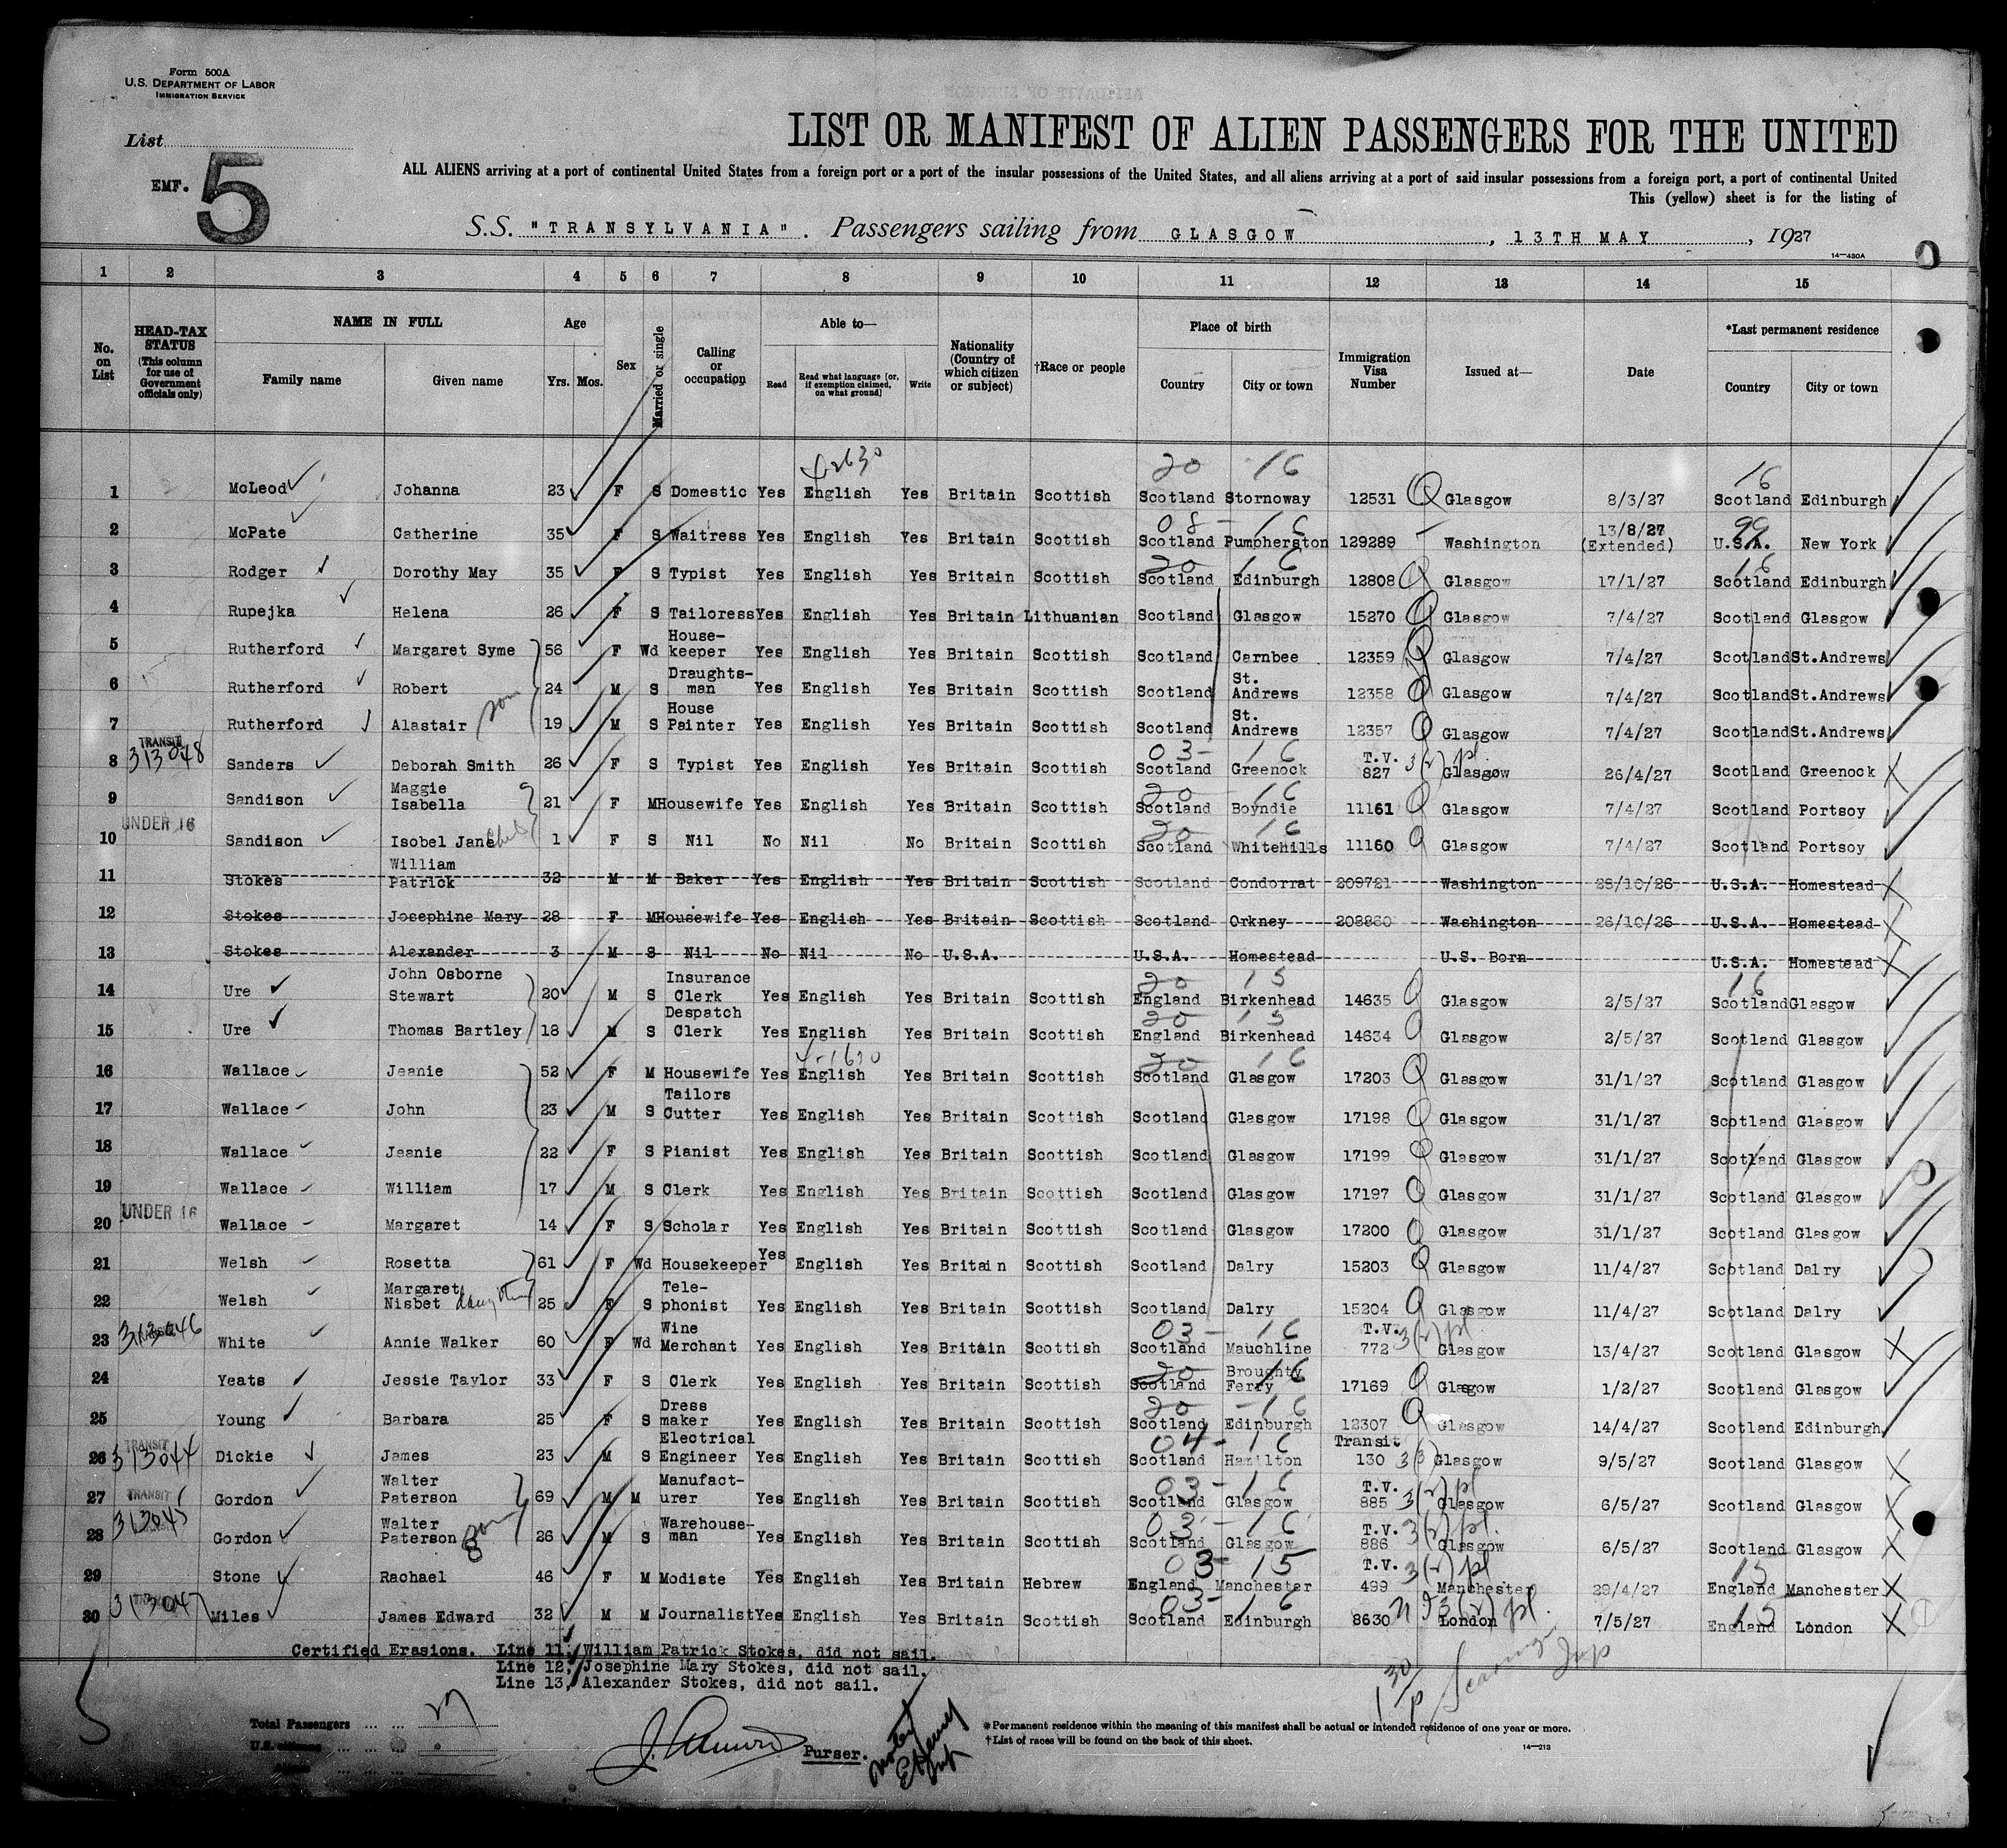 Form 500A
U.S. DEPARTMENT OF LABOR
IMMIGRATION SERVICE
List
EMF. 5
LIST OR MANIFEST OF ALIEN PASSENGERS FOR THE UNITED
ALL ALIENS arriving at a port of continental United States from a foreign port or a port of the insular possessions of the United States, and all aliens arriving at a port of said insular possessions from a foreign port, a port of continental United
This (yellow) sheet is for the listing of
S.S. "TRANSYLVANIA". Passengers sailing from GLASGOW, 13TH MAY, 1927
14-430A
1 2 3 4 5 6 7 8 9 10 11 12 13 14 15
No. on List
HEAD-TAX STATUS (This column for use of Government officials only)
NAME IN FULL
Family name Given name
Age
Yrs. Mos.
Sex
Married or single
Calling or occupation
Able to—
Read Read what language [or, if exemption claimed, on what ground] Write
Nationality (Country of which citizen or subject)
†Race or people
Place of birth
Country City or town
Immigration Visa Number
Issued at—
Date
*Last permanent residence
Country City or town
42630 20 16 16
1 McLeod Johanna 23 F S Domestic Yes English Yes Britain Scottish Scotland Stornoway 12531 Glasgow 8/3/27 Scotland Edinburgh
08-16 99
2 McPate Catherine 35 F S Waitress Yes English Yes Britain Scottish Scotland Pumpherston 129289 Washington 13/8/27 (Extended) U.S.A. New York
20 16 16
3 Rodger Dorothy May 35 F S Typist Yes English Yes Britain Scottish Scotland Edinburgh 12808 Glasgow 17/1/27 Scotland Edinburgh
4 Rupejka Helena 26 F S Tailoress Yes English Yes Britain Lithuanian Scotland Glasgow 15270 Glasgow 7/4/27 Scotland Glasgow
5 Rutherford Margaret Syme 56 F Wd House-keeper Yes English Yes Britain Scottish Scotland Carnbee 12359 Glasgow 7/4/27 Scotland St.Andrews
6 Rutherford Robert 24 M S Draughts-man Yes English Yes Britain Scottish Scotland St. Andrews 12358 Glasgow 7/4/27 Scotland St.Andrews
7 Rutherford Alastair son 19 M S House Painter Yes English Yes Britain Scottish Scotland St. Andrews 12357 Glasgow 7/4/27 Scotland St.Andrews
TRANSIT 313048 03-16
8 Sanders Deborah Smith 26 F S Typist Yes English Yes Britain Scottish Scotland Greenock T.V. 827 3(2) pl Glasgow 26/4/27 Scotland Greenock
20 16
9 Sandison Maggie Isabella 21 F M Housewife Yes English Yes Britain Scottish Scotland Boyndie 11161 Glasgow 7/4/27 Scotland Portsoy
UNDER 16 20 16
10 Sandison Isobel Jane 1 F S Nil No Nil No Britain Scottish Scotland Whitehills 11160 Glasgow 7/4/27 Scotland Portsoy
11 Stokes William Patrick 32 M M Baker Yes English Yes Britain Scottish Scotland Condorrat 209721 Washington 28/10/26 U.S.A. Homestead
12 Stokes Josephine Mary 28 F M Housewife Yes English Yes Britain Scottish Scotland Orkney 208860 Washington 26/10/26 U.S.A. Homestead
13 Stokes Alexander 3 M S Nil No Nil No U.S.A. U.S.A. Homestead U.S. Born U.S.A. Homestead
20 15 16
14 Ure John Osborne Stewart 20 M S Insurance Clerk Yes English Yes Britain Scottish England Birkenhead 14635 Glasgow 2/5/27 Scotland Glasgow
20 15
15 Ure Thomas Bartley 18 M S Despatch Clerk Yes English Yes Britain Scottish England Birkenhead 14634 Glasgow 2/5/27 Scotland Glasgow
20 16
16 Wallace Jeanie 52 F M Housewife Yes English Yes Britain Scottish Scotland Glasgow 17203 Glasgow 31/1/27 Scotland Glasgow
17 Wallace John 23 M S Tailors Cutter Yes English Yes Britain Scottish Scotland Glasgow 17198 Glasgow 31/1/27 Scotland Glasgow
18 Wallace Jeanie 22 F S Pianist Yes English Yes Britain Scottish Scotland Glasgow 17199 Glasgow 31/1/27 Scotland Glasgow
19 Wallace William 17 M S Clerk Yes English Yes Britain Scottish Scotland Glasgow 17197 Glasgow 31/1/27 Scotland Glasgow
UNDER 16
20 Wallace Margaret 14 F S Scholar Yes English Yes Britain Scottish Scotland Glasgow 17200 Glasgow 31/1/27 Scotland Glasgow
21 Welsh Rosetta 61 F Wd Housekeeper Yes English Yes Britain Scottish Scotland Dalry 15203 Glasgow 11/4/27 Scotland Dalry
22 Welsh Margaret Nisbet daughter 25 F S Tele-phonist Yes English Yes Britain Scottish Scotland Dalry 15204 Glasgow 11/4/27 Scotland Dalry
313046 03-16
23 White Annie Walker 60 F Wd Wine Merchant Yes English Yes Britain Scottish Scotland Mauchline T.V. 772 3(2) pl Glasgow 13/4/27 Scotland Glasgow
20 16
24 Yeats Jessie Taylor 33 F S Clerk Yes English Yes Britain Scottish Scotland Broughty Ferry 17169 Glasgow 1/2/27 Scotland Glasgow
20 -16
25 Young Barbara 25 F S Dress maker Yes English Yes Britain Scottish Scotland Edinburgh 12307 Glasgow 14/4/27 Scotland Edinburgh
TRANSIT 313044 04-16
26 Dickie James 23 M S Electrical Engineer Yes English Yes Britain Scottish Scotland Hamilton Transit 130 3(3) Glasgow 9/5/27 Scotland Glasgow
TRANSIT 03-16
27 Gordon Walter Paterson 69 M M Manufact-urer Yes English Yes Britain Scottish Scotland Glasgow T.V. 885 3(2) pl Glasgow 6/5/27 Scotland Glasgow
313045 03-16
28 Gordon Walter Paterson son 26 M S Warehouse-man Yes English Yes Britain Scottish Scotland Glasgow T.V. 886 3(2) pl. Glasgow 6/5/27 Scotland Glasgow
03-15 15
29 Stone Rachael 46 F M Modiste Yes English Yes Britain Hebrew England Manchester T.V. 499 3(2) pl Manchester 29/4/27 England Manchester
313047 03-16 15
30 Miles James Edward 32 M M Journalist Yes English Yes Britain Scottish Scotland Edinburgh 8630 3(2) pl. London 7/5/27 England London
Certified Erasions. Line 11, William Patrick Stokes, did not sail.
Line 12, Josephine Mary Stokes, did not sail.
Line 13, Alexander Stokes, did not sail.
Total Passengers ... ...
U.S. citizens ... ...
Aliens ... ...
Purser.
*Permanent residence within the meaning of this manifest shall be actual or intended residence of one year or more.
†List of races will be found on the back of this sheet.
14-213